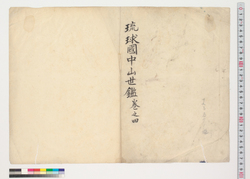 琉球國中山世鑑卷之四